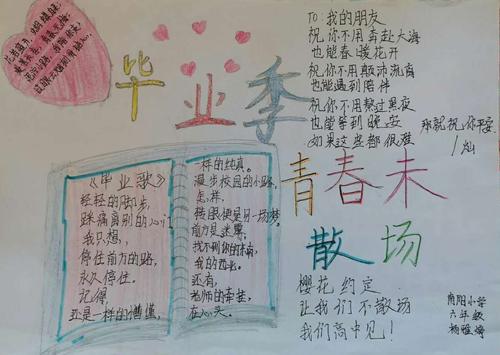 毕业季
TO:我的朋友
祝你不用奔赴大海
也能春暖花开
祝你不用颠沛流离
也能遇到陪伴
祝你不用熬过黑夜
也能等到晚安
如果这些都很难
那就祝你平安
《毕业歌》
轻轻的脚步,
踩痛离别的心门
我只想,
停住前方的路,
永久停住。
记得,
还是一样的懵懂,
一样的纯真。
漫步校园的小路,
怎样,
转眼便是另一场梦。
前方是迷雾,
找不到你的东南,
我的西北。
还有,
老师的牵挂,
在心头。
青春未
散场
樱花约定
让我们不散场
我们高中见!
南阳小学
六年级
杨雅婷